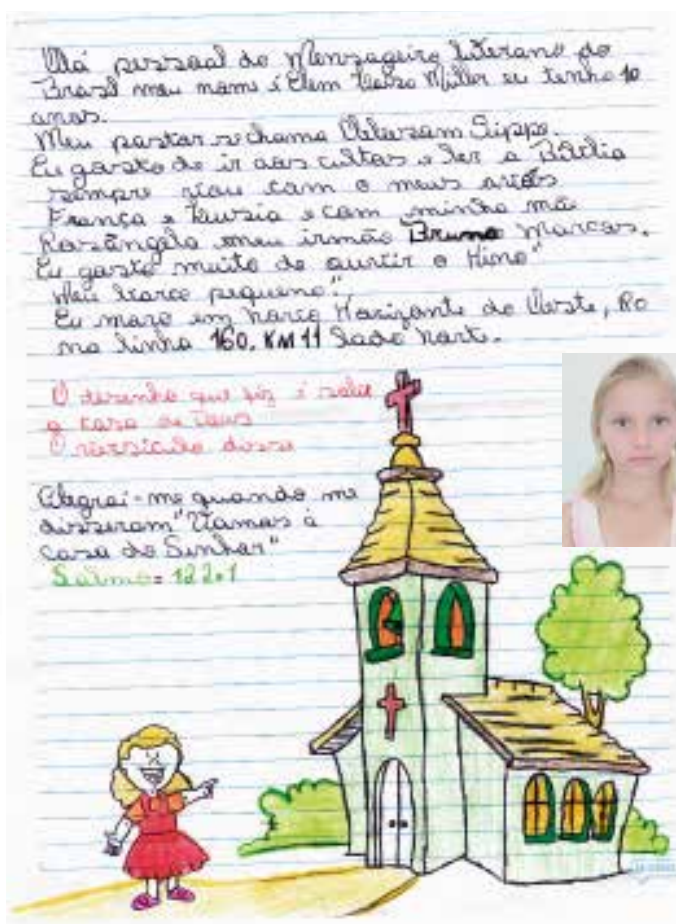 Olá pessoal do Mensageiro Luterano do
Brasil meu nome é Elem Müller eu tenho 10
anos.
Meu pastor se chama
Eu gosto de ir aos cultos e ler a Bíblia
sempre vou com o meus avós
França e e com minha mã
Rosângela meu irmão Bruno Marcos.
Eu gosto muito de ouvir o Hino"
Meu barco pequeno".
Eu moro em Horizonte do Oeste, Ro
na linha 160. KM 11 lado Norte.
O desenho que fiz é sobre
a casa de Deus
O versículo disse
Alegrai-me quando me
disseram "Vamos à
casa do Senhor"
Salmo= 122.1